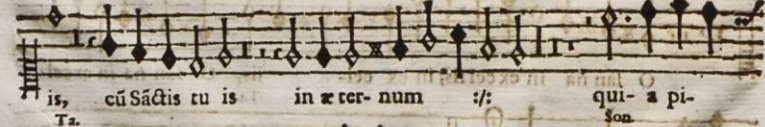 is, cũ Sãctis tu is in æ ter- num :/: qui- a pi-
Ta. Son.